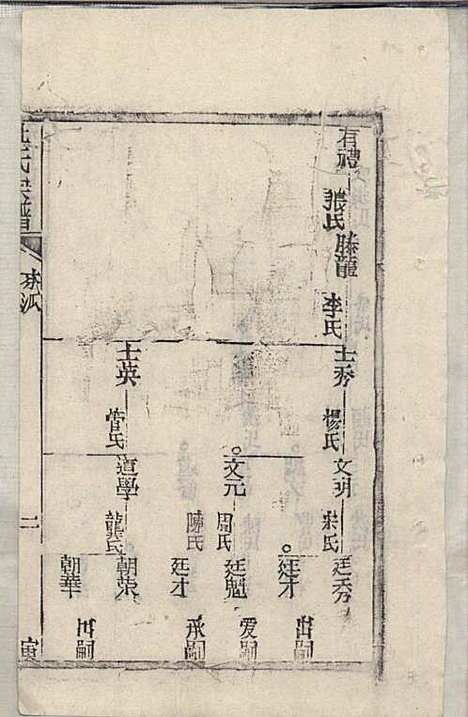 有禮
張氏
騰龍
李氏
士秀
楊氏
士英
管氏
文炳
宋氏
文元
周氏
陳氏
道學
龔氏
廷秀
出嗣
廷才
廷魁
爱嗣
廷才
承嗣
朝榮
朝華
出嗣
氏宗譜
二